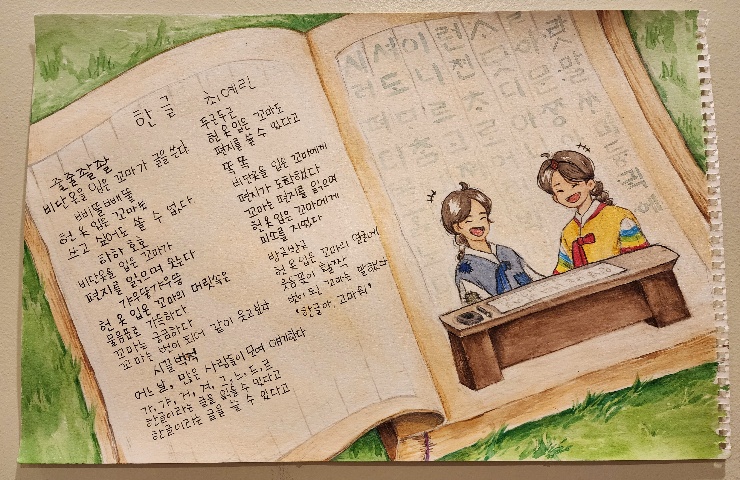 한글 최예린
줄줄좔좔
비단옷을 입은 꼬마가 글을 쓴다
헌 옷 입은 꼬마는
쓰고 싶어도 쓸 수 없다
하하 호호
비단옷을 입은 꼬마가
편지를 읽으며 웃는다
갸우뚱갸우뚱
헌 옷 입은 꼬마의 머릿속은
물음표로 가득하다
꼬마는 궁금하다
꼬마는 벗이 되어 같이 웃고싶다
시끌벅적
어느 날, 많은 사람들이 모여 얘기한다
가, 갸, 거, 겨, 그, 느, 드, 르
한글이라는 글을 읽을 수 있다고
한글이라는 글을 쓸 수 있다고
두근두근
헌 옷 입은 꼬마도
편지를 쓸 수 있다고
똑 똑
비단옷을 입은 꼬마에게
편지가 도착했다
꼬마는 편지를 읽으며
헌 옷 입은 꼬마에게
미소를 지었다
방긋방긋
헌 옷 입은 꼬마의 얼굴에
웃음꽃이 활짝
벗이 된 꼬마는 말한다
"한글아, 고마워"